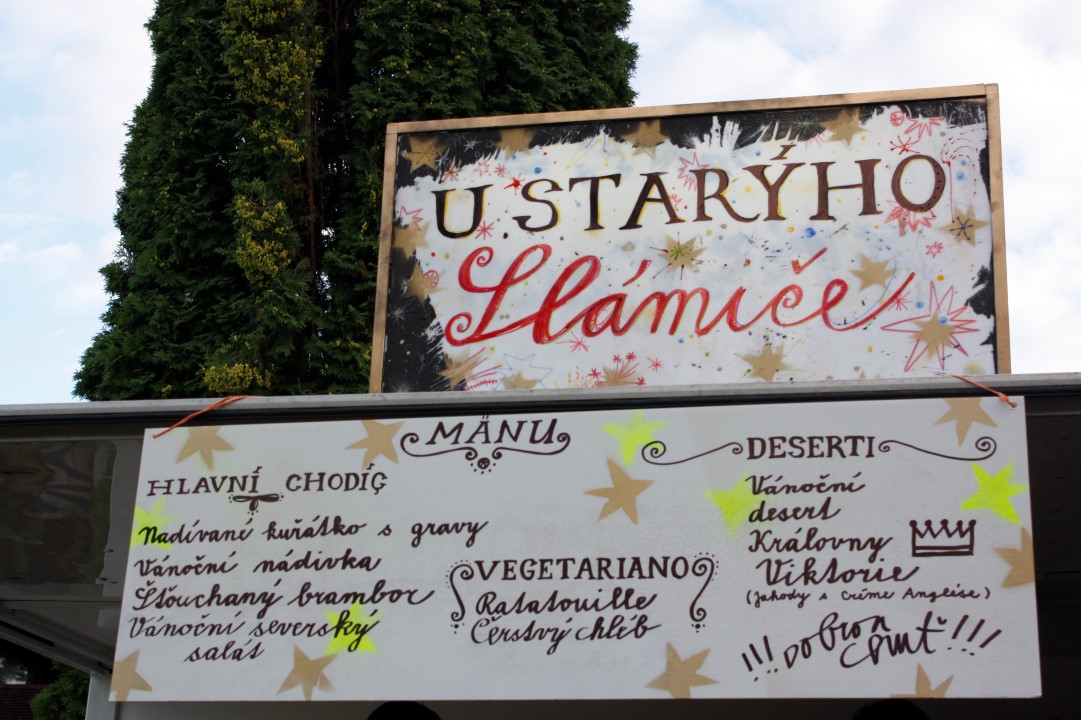 U STARÝHO
Slámiče
MÄNU
HLAVNÍ CHODÍÇ
Nadívané kuřátko s gravy
Vánoční nádivka
Šťouchaný brambor
Vánoční severský
salát
VEGETARIANO
Ratatouille
Čerstvý chléb
DESERTI
Vánoční
desert
Královny
Viktorie
(jahody s Créme Anglése)
!!! DObRon
CHuť !!!